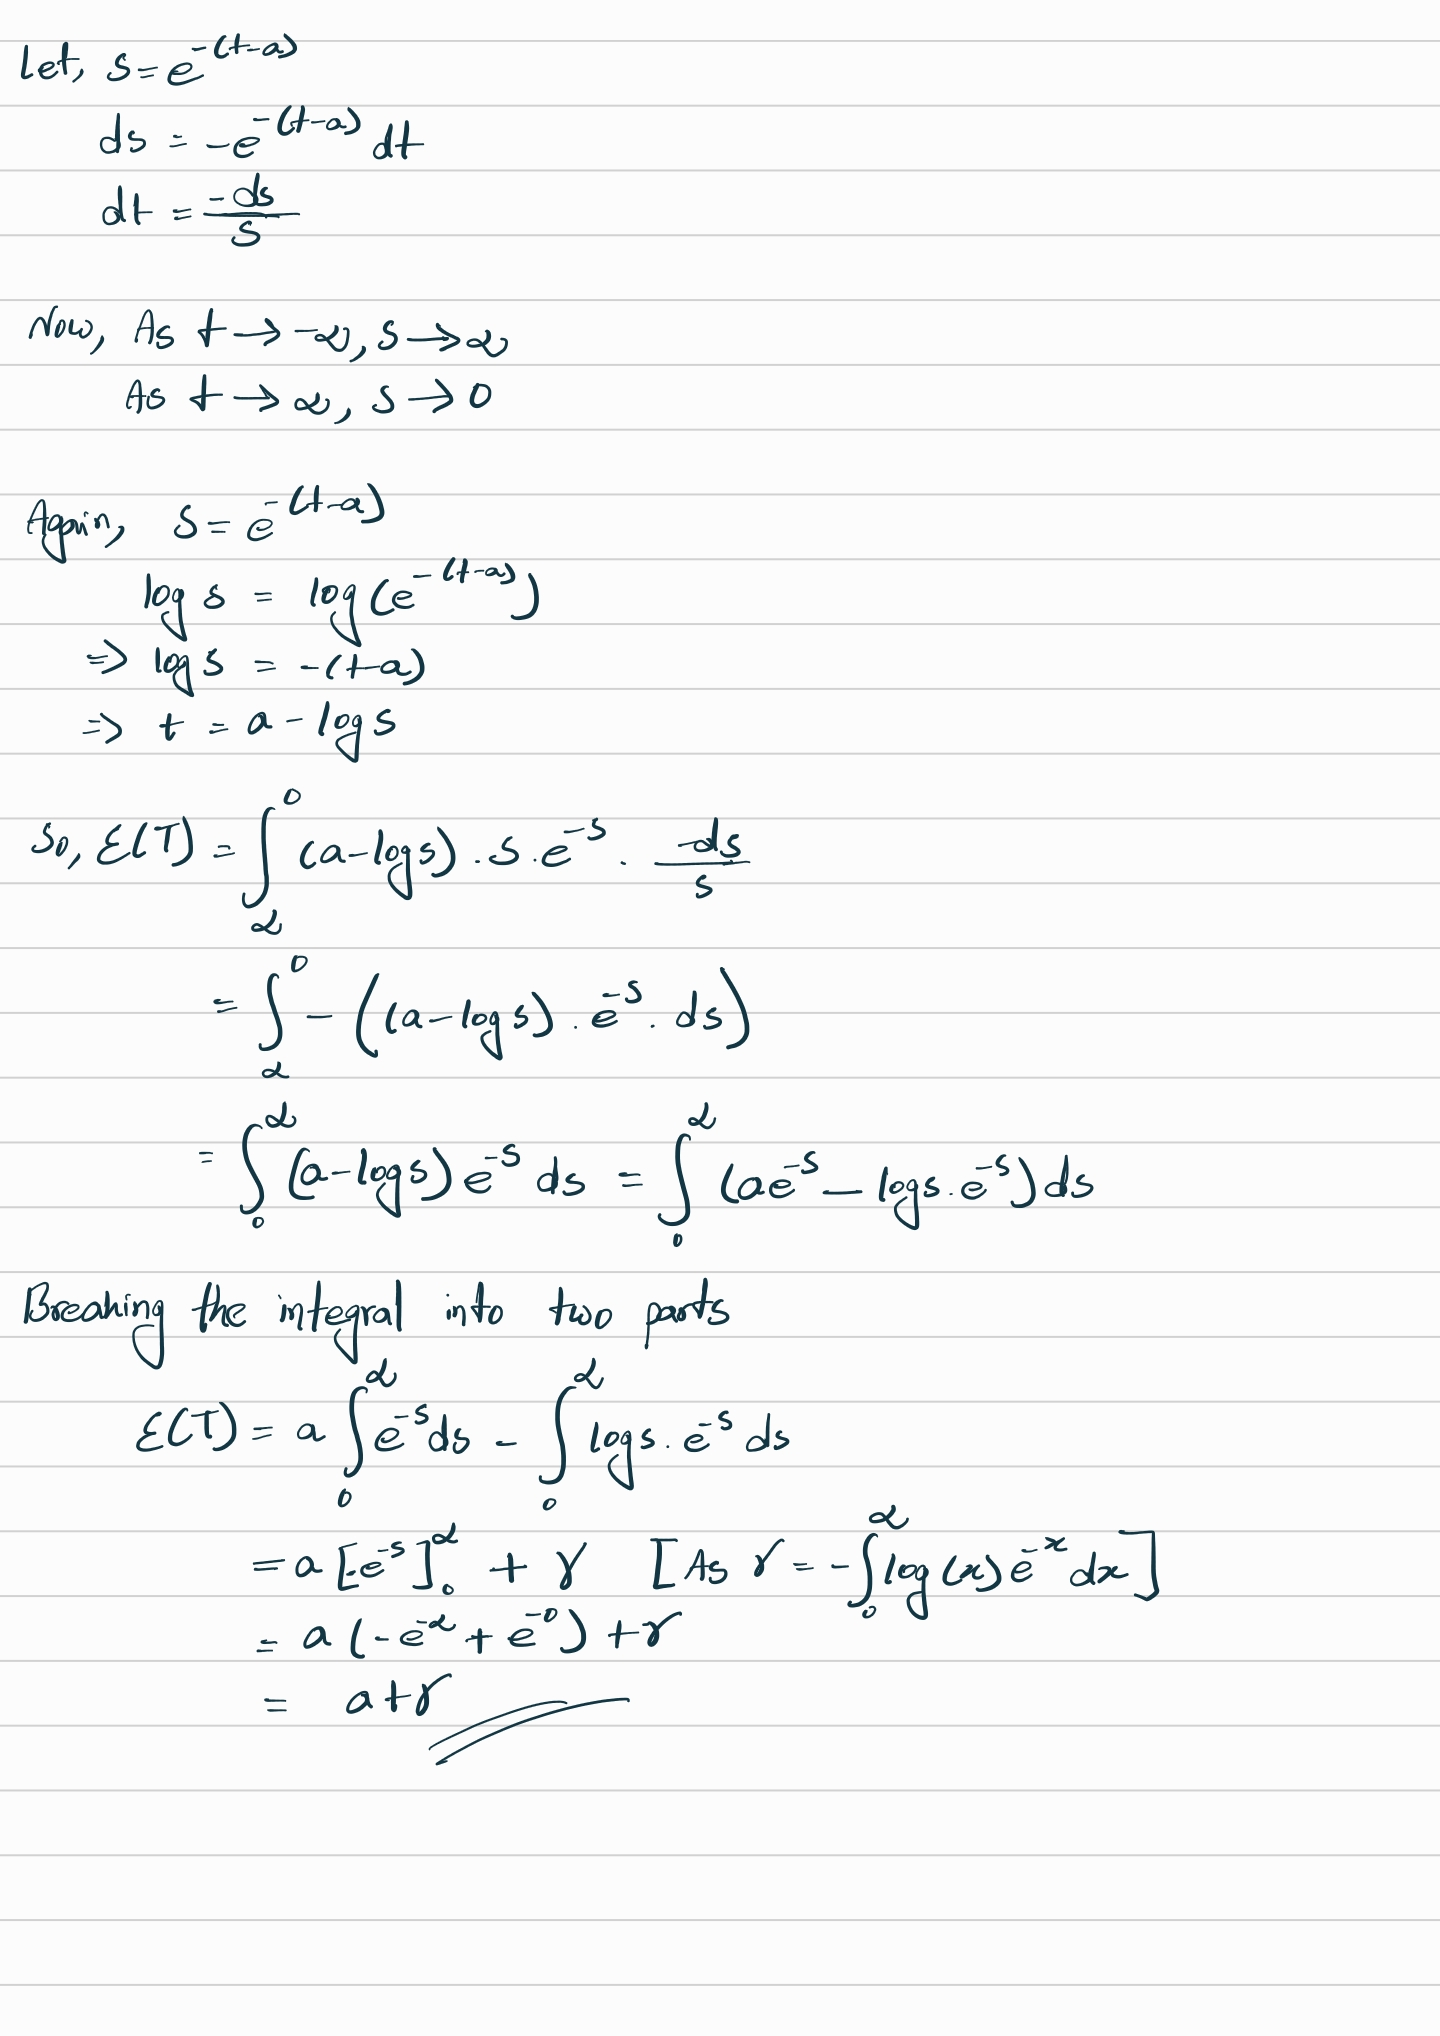 Let, s = e^{-(t-a)}
ds = -e^{-(t-a)} dt
dt = \frac{-ds}{s}
Now, As t → -∞, s → ∞
As t → ∞, s → 0
Again, s = e^{-(t-a)}
log s = log(e^{-(t-a)})
⇒ log s = -(t-a)
⇒ t = a - log s
So, E(T) = ∫_{∞}^{0} (a - log s) . s . e^{-s} . \frac{-ds}{s}
= ∫_{∞}^{0} - ((a - log s) . e^{-s} . ds)
= ∫_{0}^{∞} (a - log s) e^{-s} ds = ∫_{0}^{∞} (ae^{-s} - log s . e^{-s}) ds
Breaking the integral into two parts
E(T) = a ∫_{0}^{∞} e^{-s} ds - ∫_{0}^{∞} log s . e^{-s} ds
= a [-e^{-s}]_{0}^{∞} + γ [As γ = -∫_{0}^{∞} log(x) e^{-x} dx]
= a (-e^{-∞} + e^{-0}) + γ
= a + γ